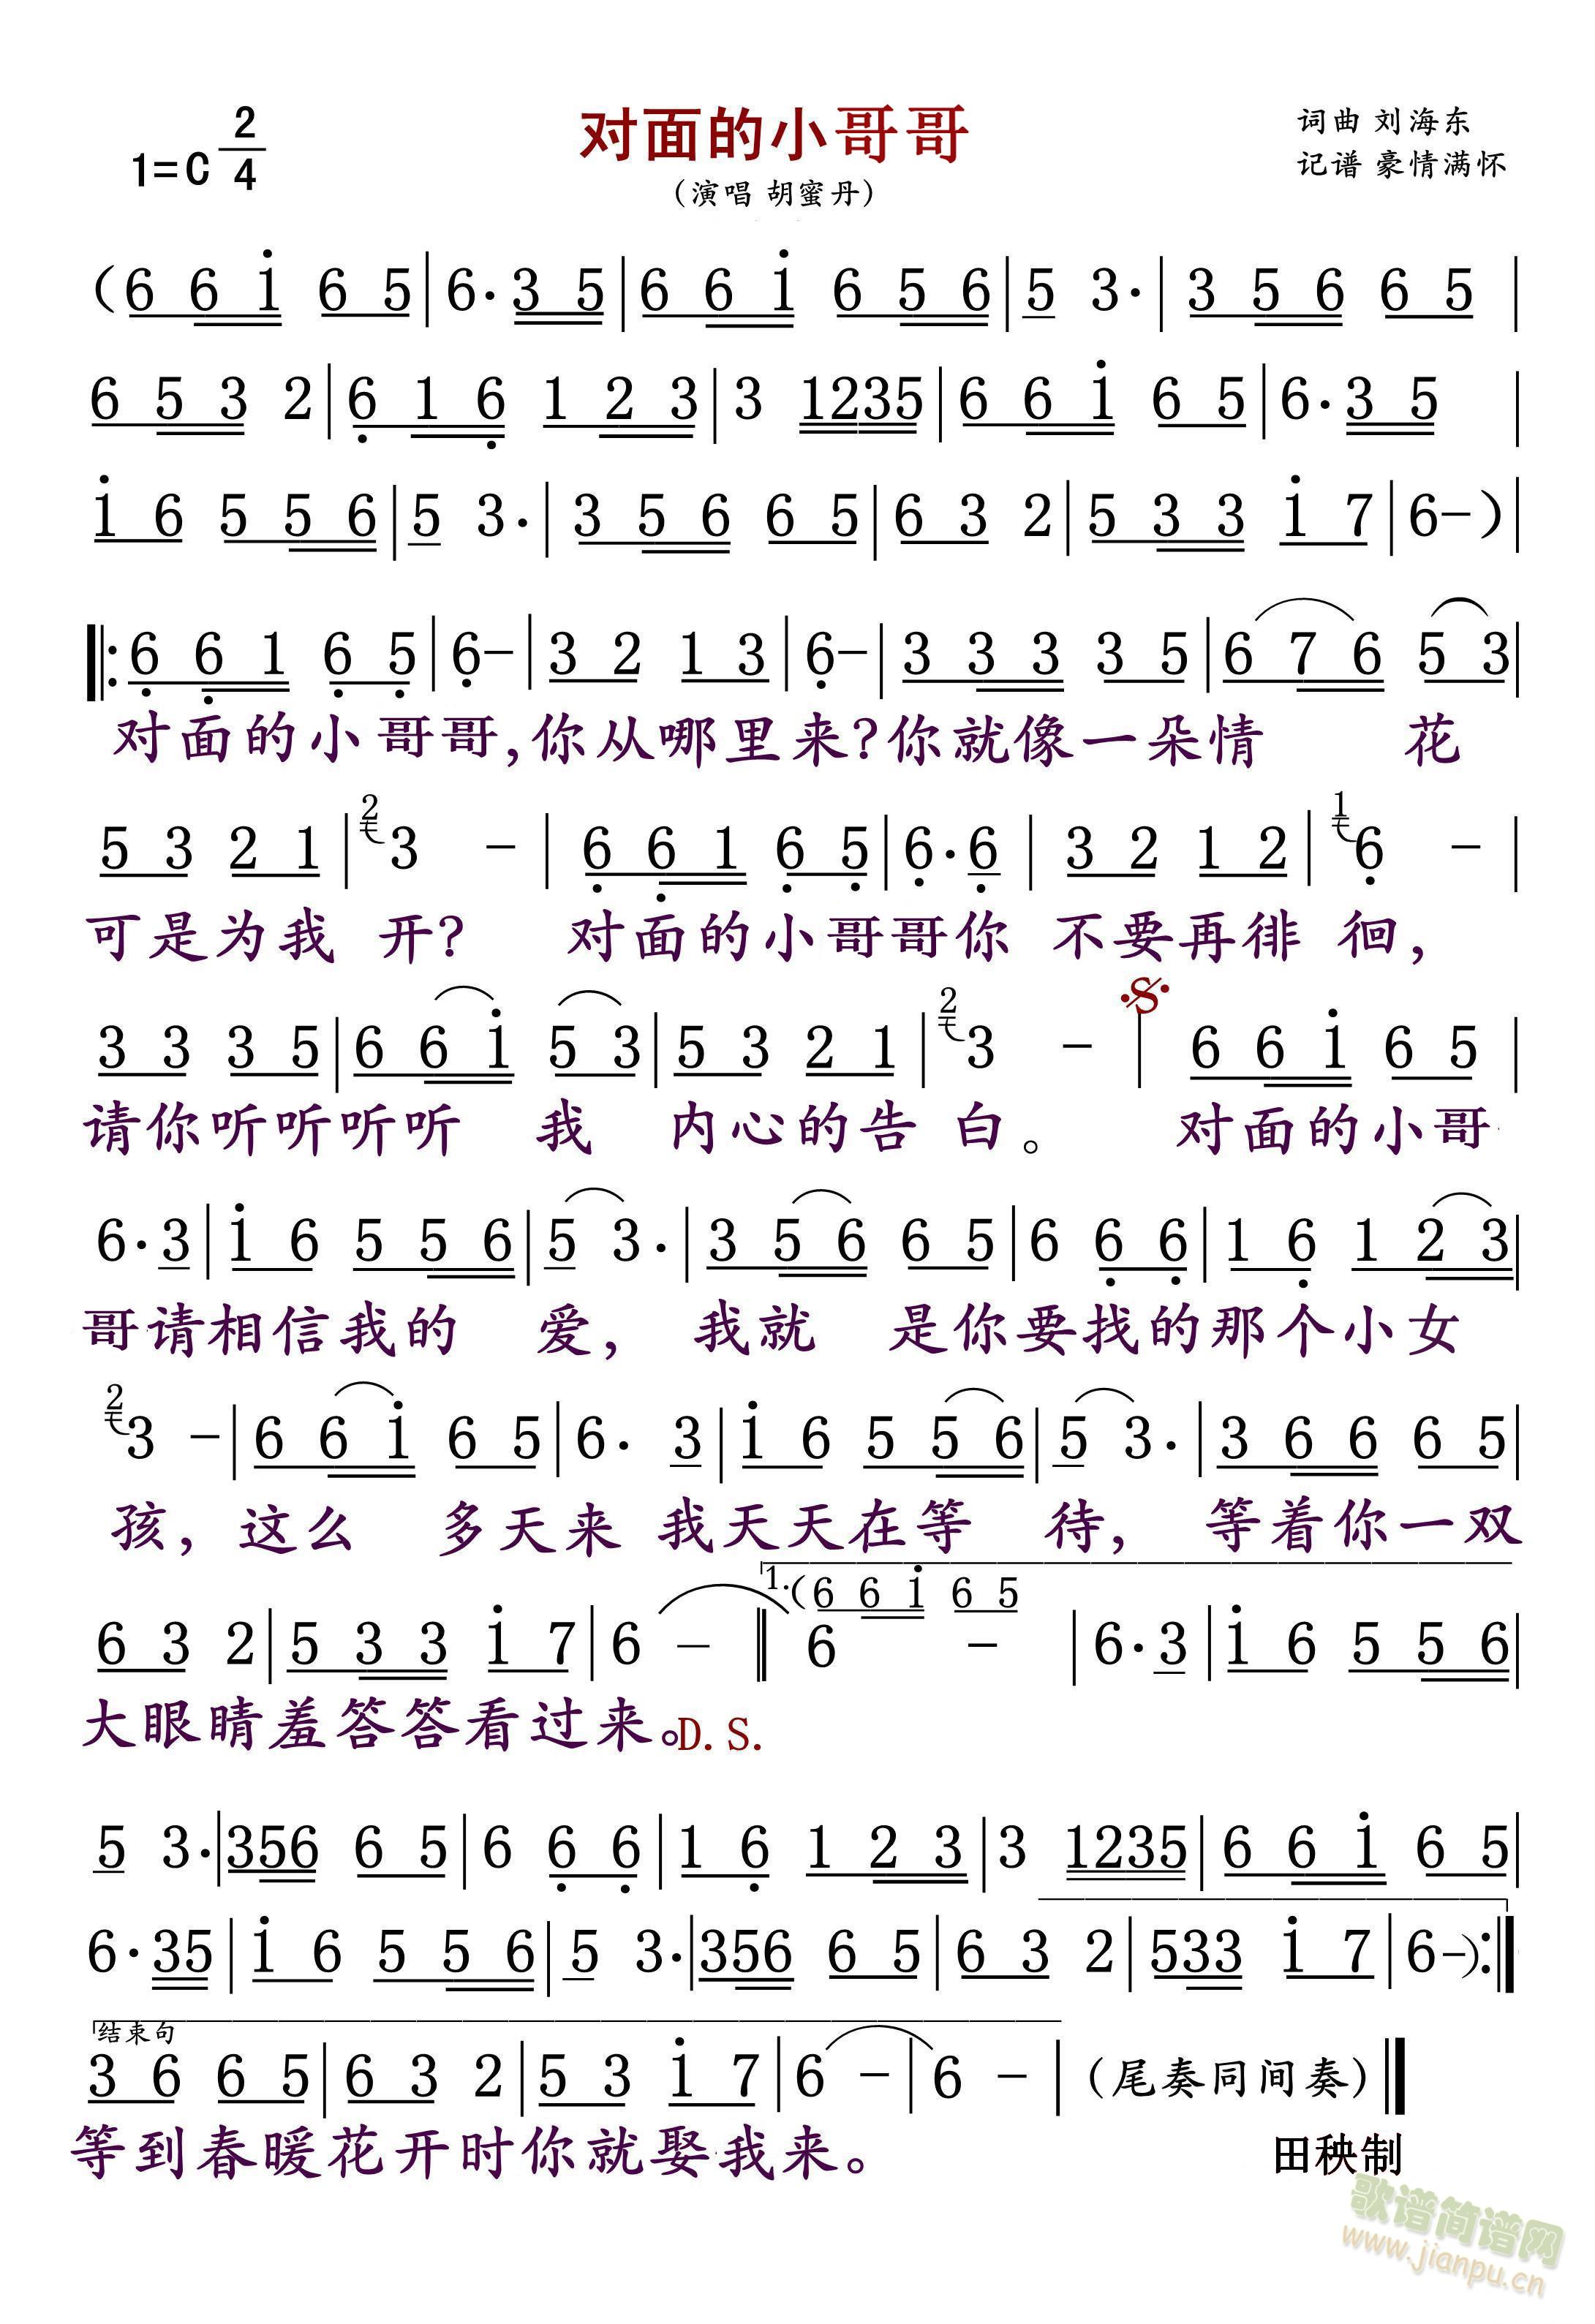 对面的小哥哥
1=C 2/4
(演唱 胡蜜丹)
词曲 刘海东
记谱 豪情满怀
(6 6 i 6 5|6·3 5|6 6 i 6 5 6|5 3·|3 5 6 6 5|
6 5 3 2|6 1 6 1 2 3|3 1235|6 6 i 6 5|6·3 5|
i 6 5 5 6|5 3·|3 5 6 6 5|6 3 2|5 3 3 i 7|6-)|
‖:6 6 1 6 5|6-|3 2 1 3|6-|3 3 3 3 5|6 7 6 5 3|
对面的小哥哥,你从哪里来?你就像一朵情 花
5 3 2 1|2 3 -|6 6 1 6 5|6·6|3 2 1 2|1 6 -|
可是为我 开? 对面的小哥哥你 不要再徘 徊,
3 3 3 5|6 6 i 5 3|5 3 2 1|2 3 -|6 6 i 6 5|
请你听听听听 我 内心的告 白。 对面的小哥
6·3|i 6 5 5 6|5 3·|3 5 6 6 5|6 6 6|1 6 1 2 3|
哥请相信我的 爱, 我就 是你要找的那个小女
2 3 -|6 6 i 6 5|6· 3|i 6 5 5 6|5 3·|3 6 6 6 5|
孩, 这么 多天来 我天天在等 待, 等着你一双
1.(6 6 i 6 5
6 3 2|5 3 3 i 7|6 -‖6 -|6·3|i 6 5 5 6|
大眼睛羞答答看过来。D.S.
5 3·|356 6 5|6 6 6|1 6 1 2 3|3 1235|6 6 i 6 5|
6·35|i 6 5 5 6|5 3·|356 6 5|6 3 2|533 i 7|6-):‖
结束句
3 6 6 5|6 3 2|5 3 i 7|6 -|6 -|(尾奏同间奏)‖
等到春暖花开时你就娶我来。
田秧制
歌谱简谱网
www.jianpu.cn